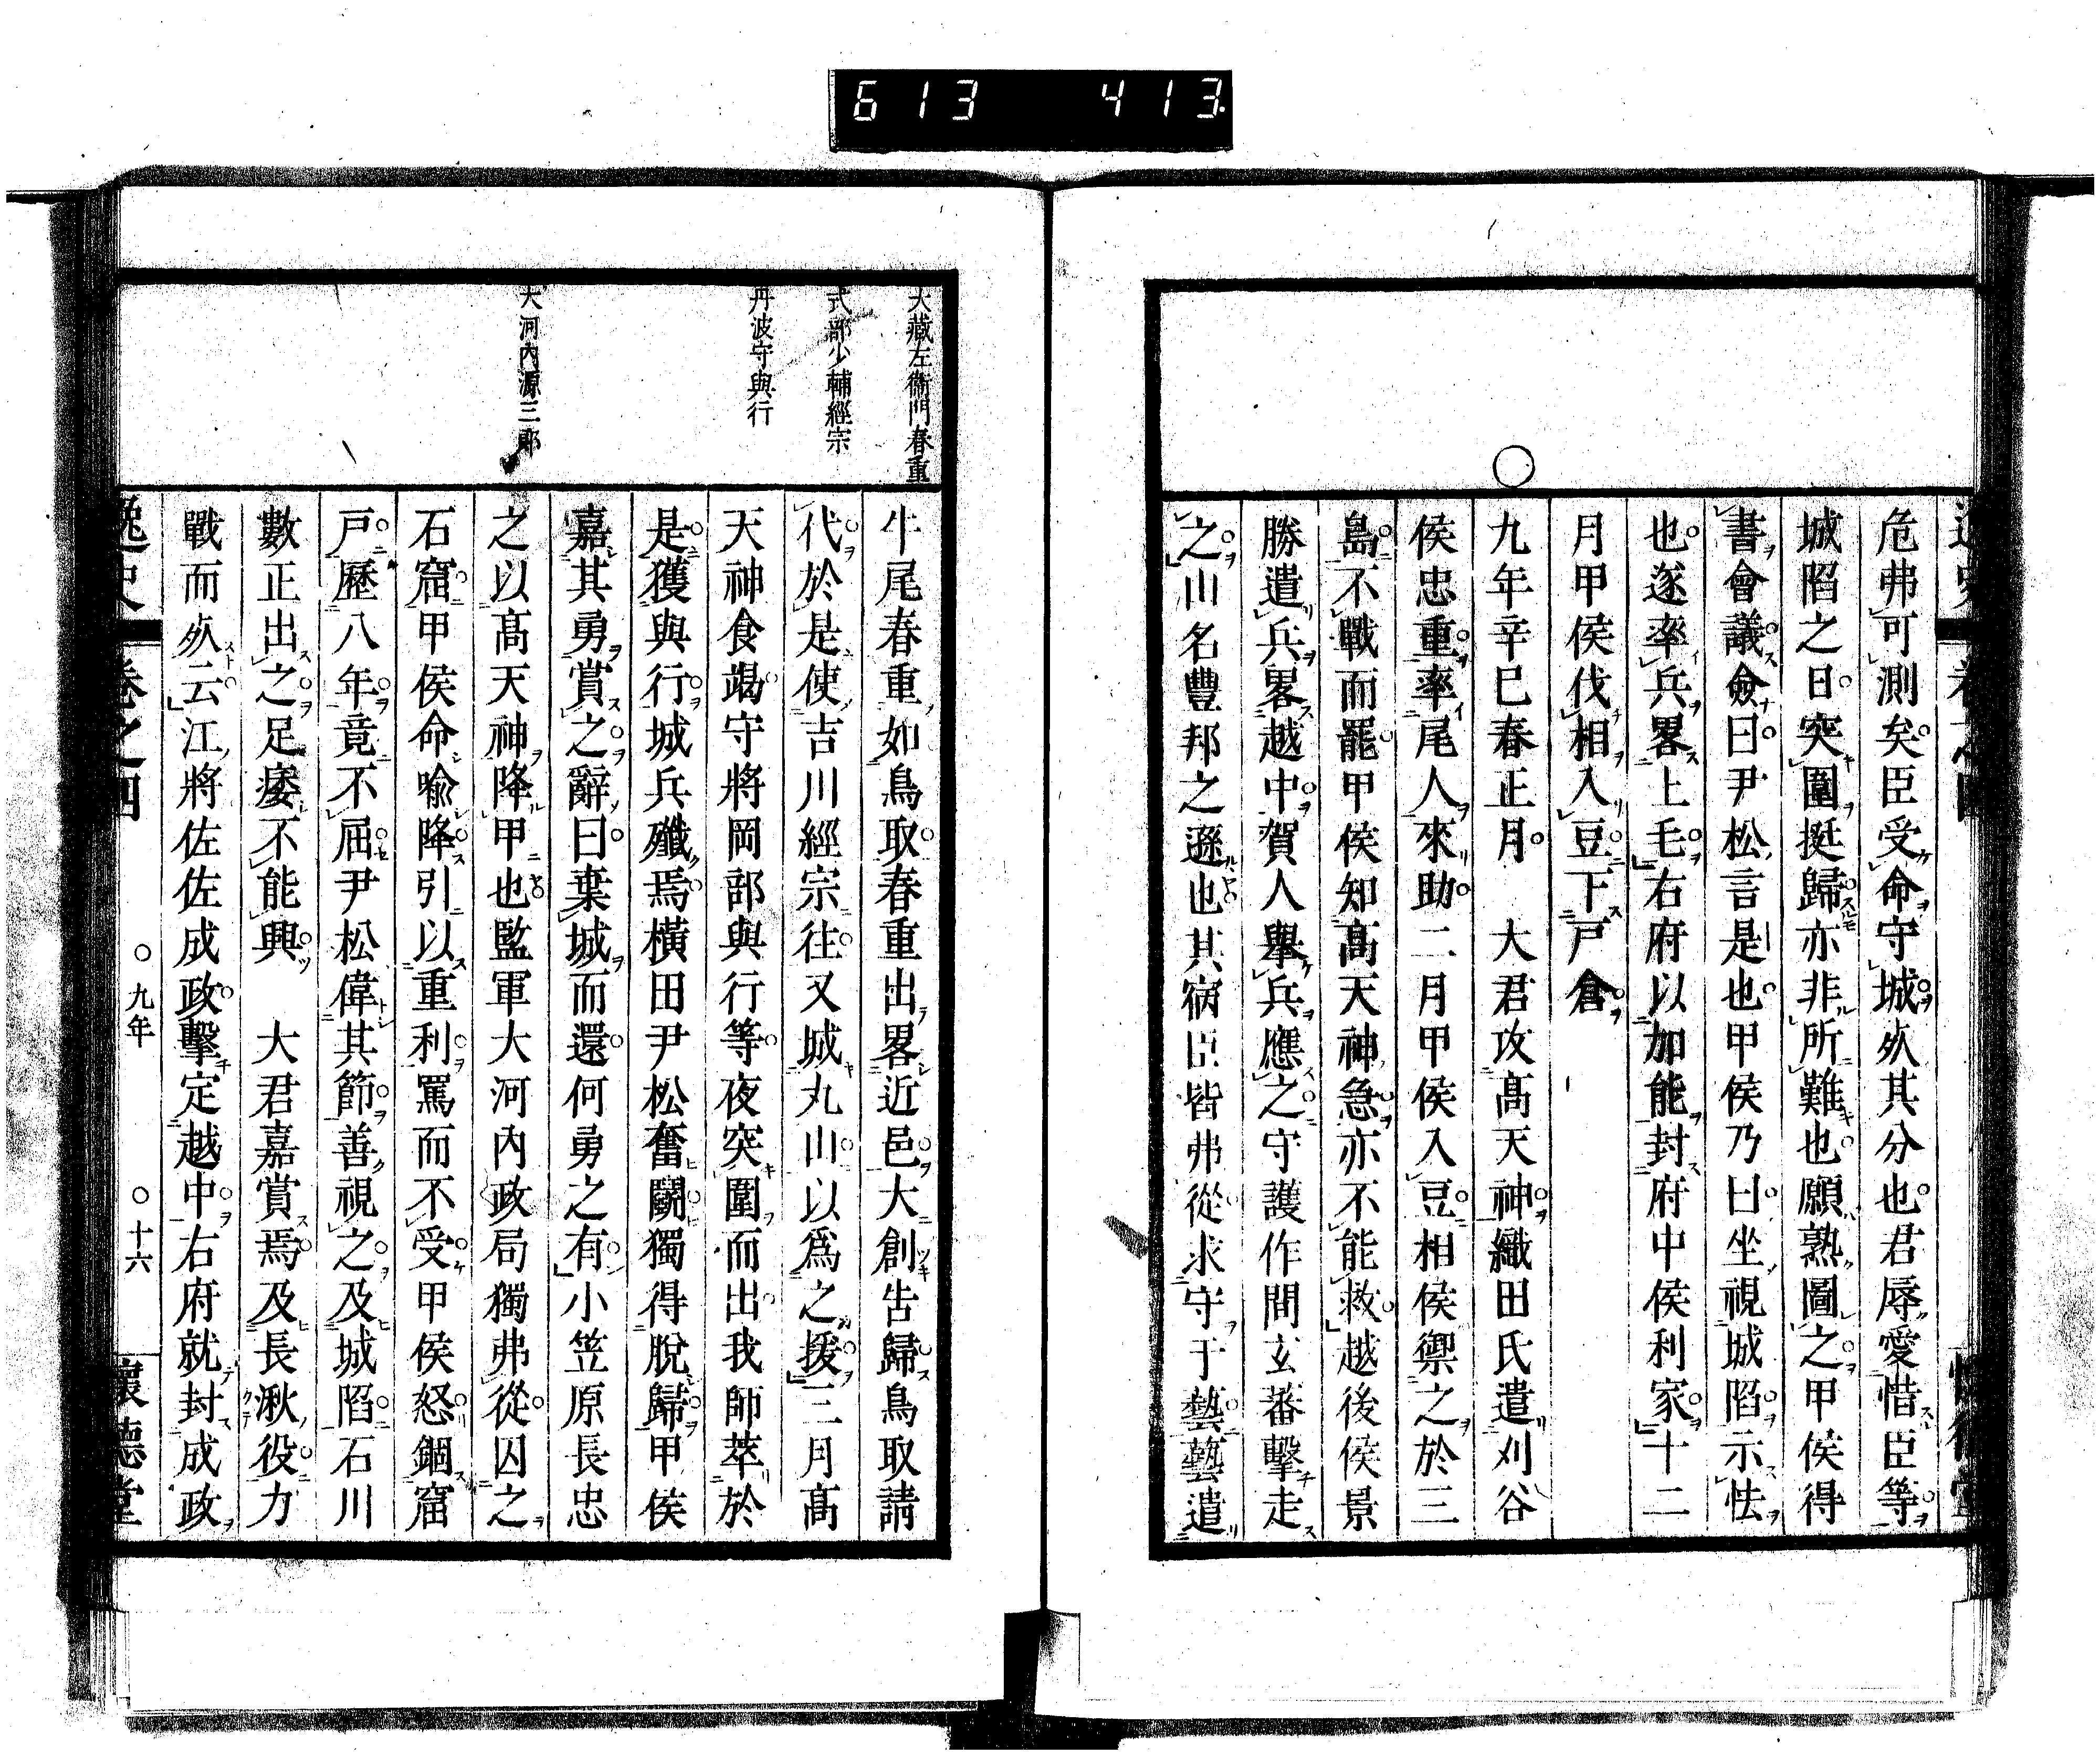 613 413
危弗可測矣臣受命守城死其分也君辱愛惜臣等
城陷之日突圍挺歸亦非所難也願熟圖之甲侯得
書會議僉曰尹松言是也甲侯乃曰坐視城陷示怯
也遂率兵畧上毛右府以加能封府中侯利家十二
月甲侯伐相入豆下戸倉
○
九年辛巳春正月 大君攻高天神織田氏遣刈谷
侯忠重率尾人來助二月甲侯入豆相侯禦之於三
島不戰而罷甲侯知高天神急亦不能救越後侯景
勝遣兵畧越中賀人舉兵應之守護作間玄蕃擊走
之山名豐邦之遜也其病臣皆弗從求守于藝藝遣
大藏左衞門春重
牛尾春重如鳥取春重出畧近邑大創告歸鳥取請
式部少輔經宗
代於是使吉川經宗往又城丸山以爲之援三月高
丹波守與行
天神食竭守將岡部與行等夜突圍而出我師萃於
是獲與行城兵殲焉橫田尹松奮鬬獨得脫歸甲侯
嘉其勇賞之辭曰棄城而還何勇之有小笠原長忠
大河內源三郎
之以高天神降甲也監軍大河內政局獨弗從囚之
石窟甲侯命喻降引以重利罵而不受甲侯怒錮窟
戸歷八年竟不屈尹松偉其節善視之及城陷石川
數正出之足痿不能興 大君嘉賞焉及長湫役力
戰而死云江將佐佐成政擊定越中右府就封成政
逸史 卷之四 ○九年 ○十六 懷德堂